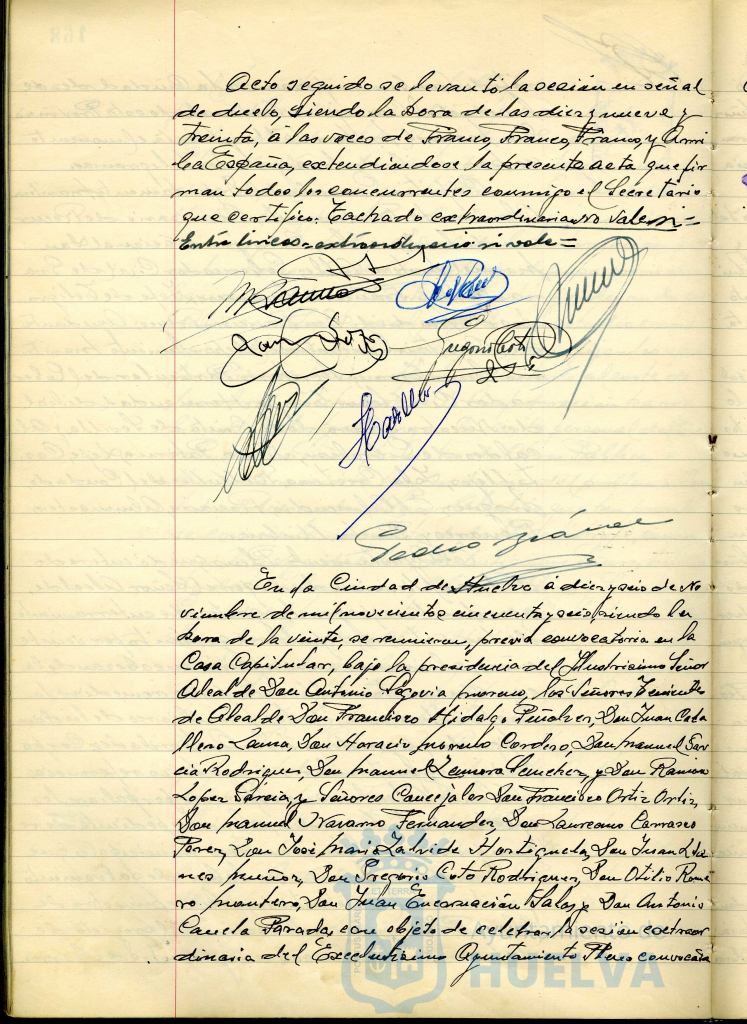 Acto seguido se levantó la sesión en señal
de duelo, siendo la hora de las diez y nueve y
treinta, á las voces de Franco, Franco, Franco, y Arri
ba España, extendiendose la presente acta que fir
man todos los concurrentes conmigo el Secretario
que certifico: Tachado extraordinaria=no vale=
Entre lineas=extraordinario si vale=
Gregorio Coto
Pedro
En la Ciudad de Huelva á diez y seis de No
viembre de mil novecientos cincuenta y seis, siendo la
hora de la veinte, se reunieron, previa convocatoria en la
Casa Capitular, bajo la presidencia del Ilustrisimo Señor
Alcalde Don Antonio Segovia Moreno, los Señores Tenientes
de Alcalde Don Francisco Hidalgo Peñalver, Don Juan Caba
llero Don Horacio Cordero, Don Manuel Gar
cia Rodriguez, Don Manuel Zamora Sanchez, y Don Ramon
Lopez Garcia, y Señores Concejales Don Francisco Ortiz Ortiz,
Don Manuel Navarro Fernandez, Don Laureano Carrasco
Perez, Don José Mari Zalvide Don Juan
Muñoz, Don Gregorio Coto Rodriguez, Don Otilio Rome
ro Montero, Don Juan Encarnación Salas y Don Antonio
Canela Parada, con objeto de celebrar la sesión extraor
dinaria del Excelentisimo Ayuntamiento Pleno convocada
HUELVA